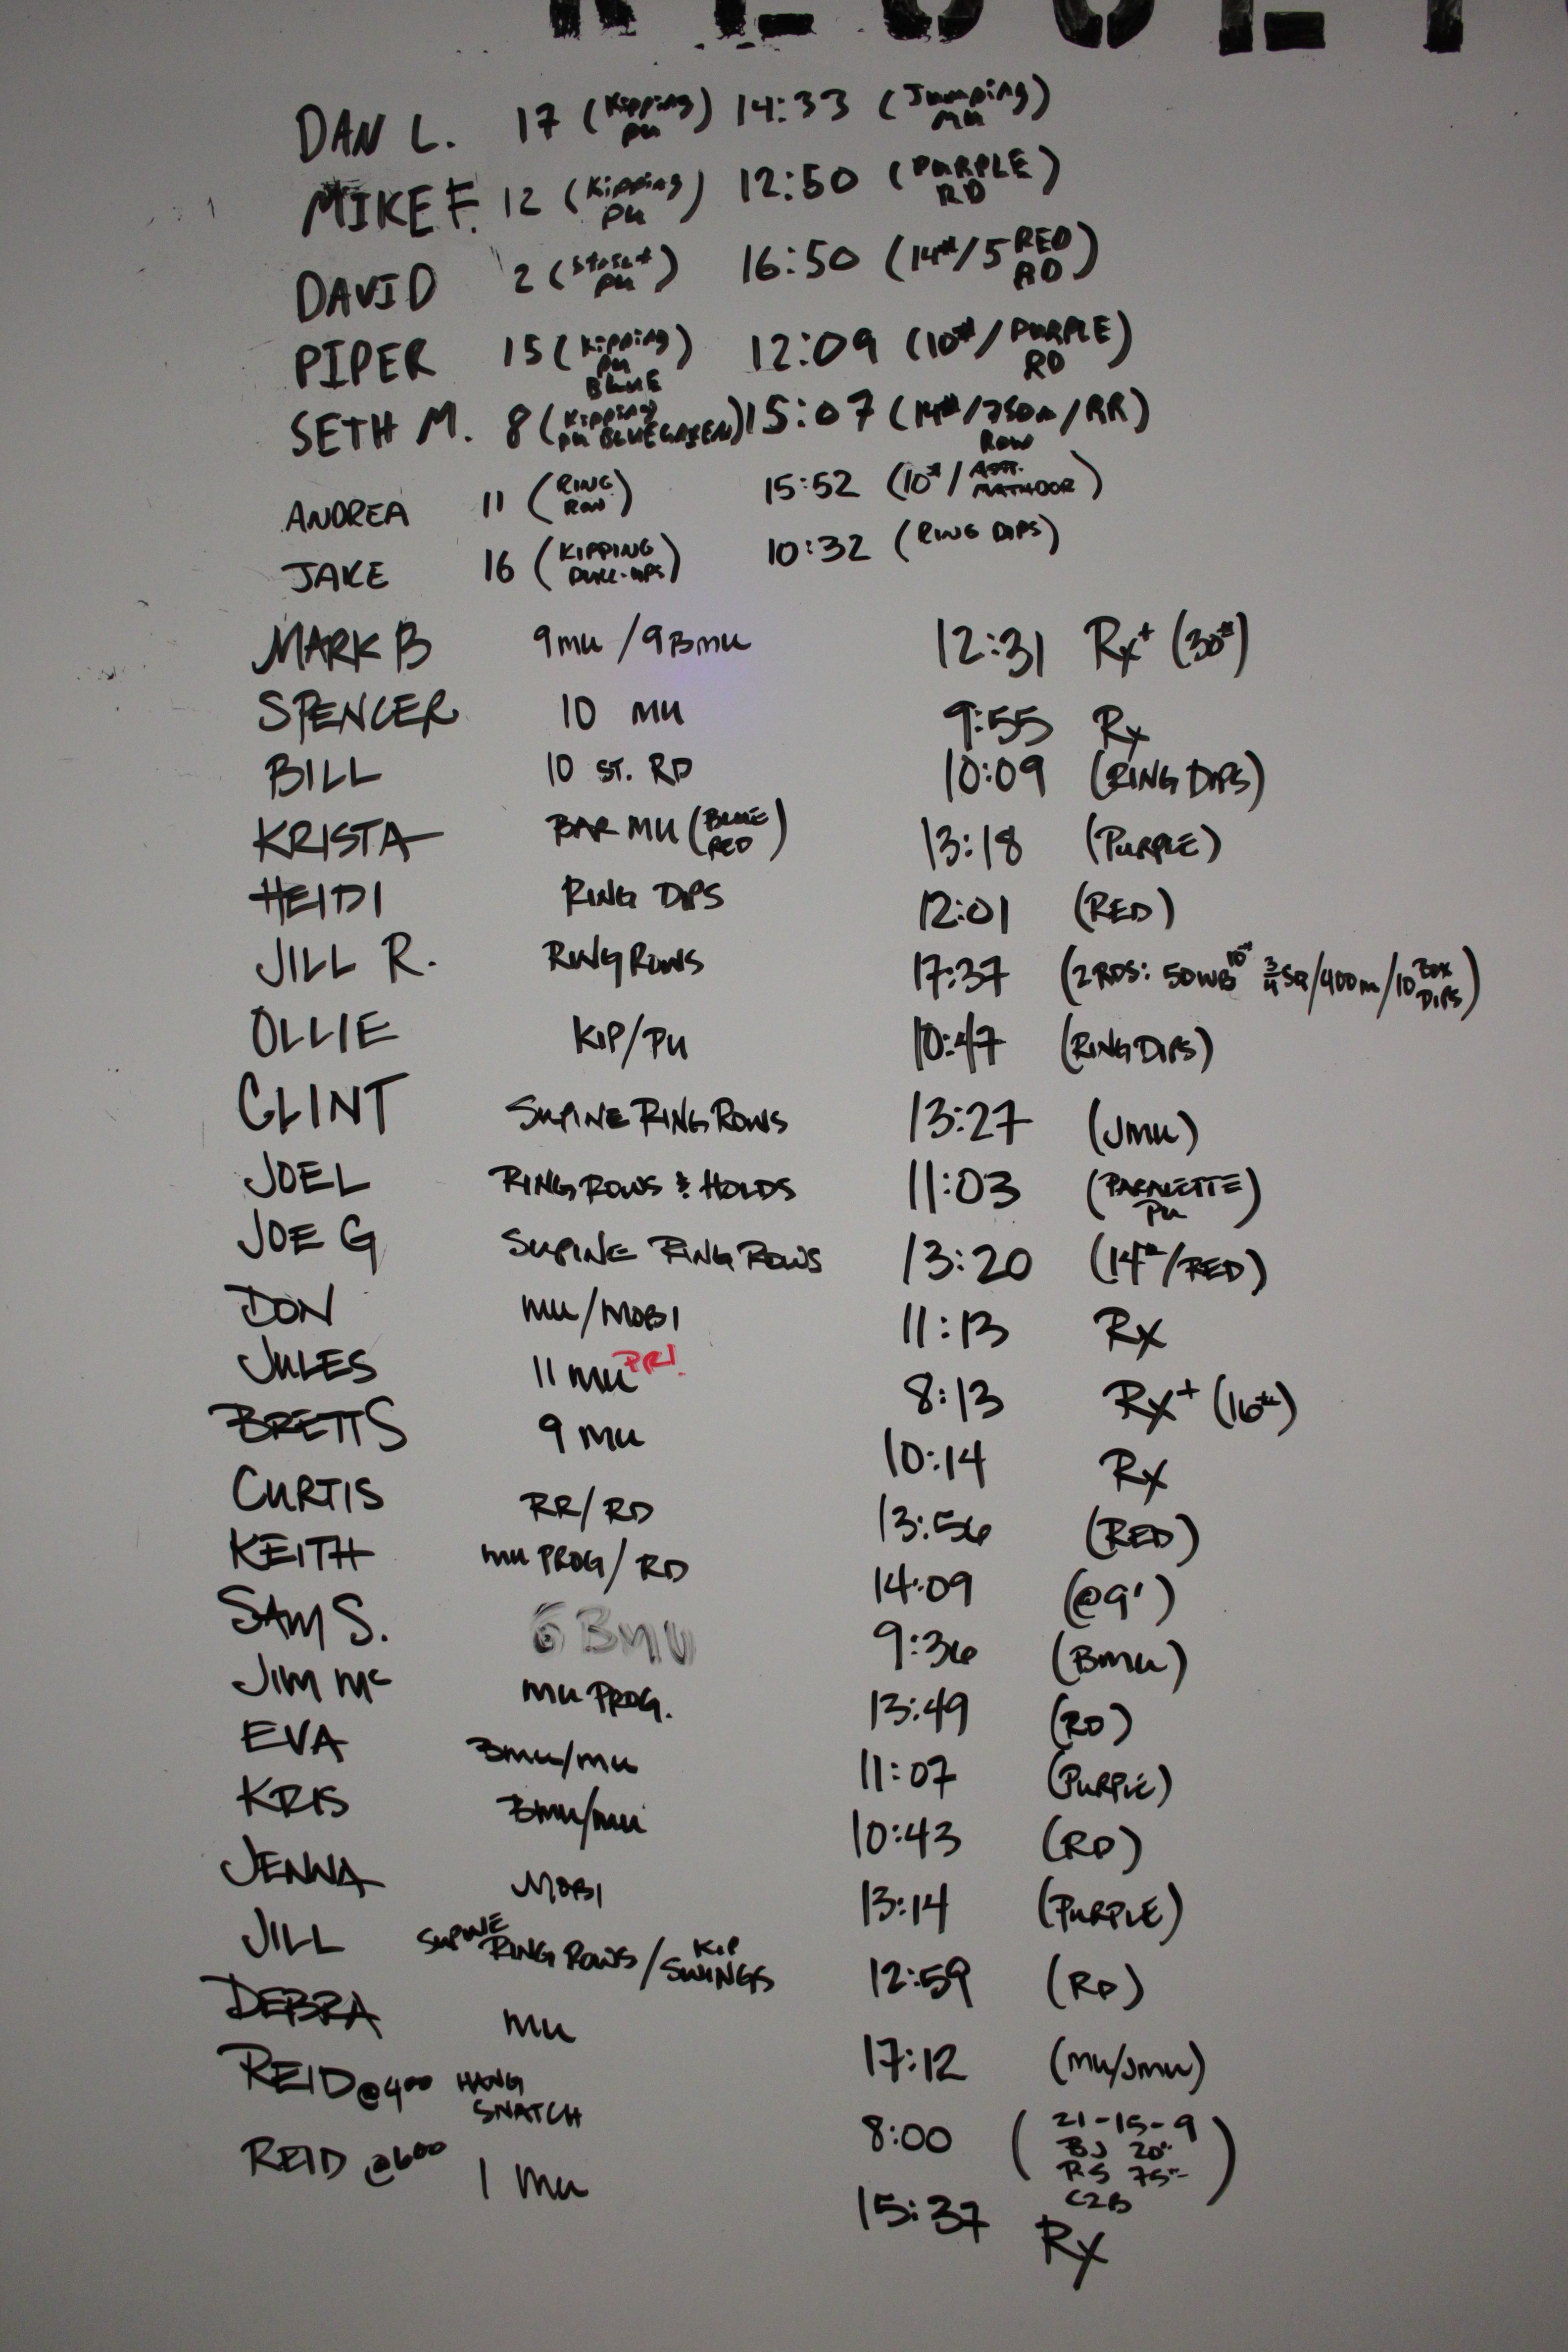 DAN L. 17 (Kipping PU) 14:33 (Jumping MU)
MIKE F. 12 (Kipping PU) 12:50 (PURPLE RD)
DAVID 2 (Strict PU) 16:50 (14#/5 RED RD)
PIPER 15 (Kipping PU BLUE) 12:09 (10#/PURPLE RD)
SETH M. 8 (Kipping PU BLUE GREEN) 15:07 (14#/750m ROW/RR)
ANDREA 11 (RING ROW) 15:52 (10#/ MATADOR)
JAKE 16 (KIPPING PULL-UPS) 10:32 (RING DIPS)
MARK B 9 MU / 9 BMU 12:31 Rx+ (30#)
SPENCER 10 MU 9:55 Rx
BILL 10 ST. RD 10:09 (RING DIPS)
KRISTA BAR MU (BLUE RED) 13:18 (PURPLE)
HEIDI RING DIPS 12:01 (RED)
JILL R. RING ROWS 17:37 (2 RDS: 50 WB 10# 3/4 SQ/400m/10 BOX DIPS)
OLLIE KIP/PU 10:47 (RING DIPS)
CLINT SUPINE RING ROWS 13:27 (JMU)
JOEL RING ROWS & HOLDS 11:03 (PARALETTE PU)
JOE G SUPINE RING ROWS 13:20 (14#/RED)
DON MU/MOBI 11:13 Rx
JULES 11 MU PR! 8:13 Rx+ (16#)
BRETT S 9 MU 10:14 Rx
CURTIS RR/RD 13:56 (RED)
KEITH MU PROG/RD 14:09 (@9')
SAM S. 6 BMU 9:36 (BMU)
JIM MC MU PROG. 13:49 (RD)
EVA BMU/MU 11:07 (PURPLE)
KRIS BMU/MU 10:43 (RD)
JENNA MOBI 13:14 (PURPLE)
JILL SUPINE RING ROWS/KIP SWINGS 12:59 (RD)
DEBRA MU 17:12 (MU/JMU)
REID @400 HANG SNATCH 8:00 (21-15-9 BJ 20" PS 75# C2B)
REID @600 1 MU 15:37 Rx